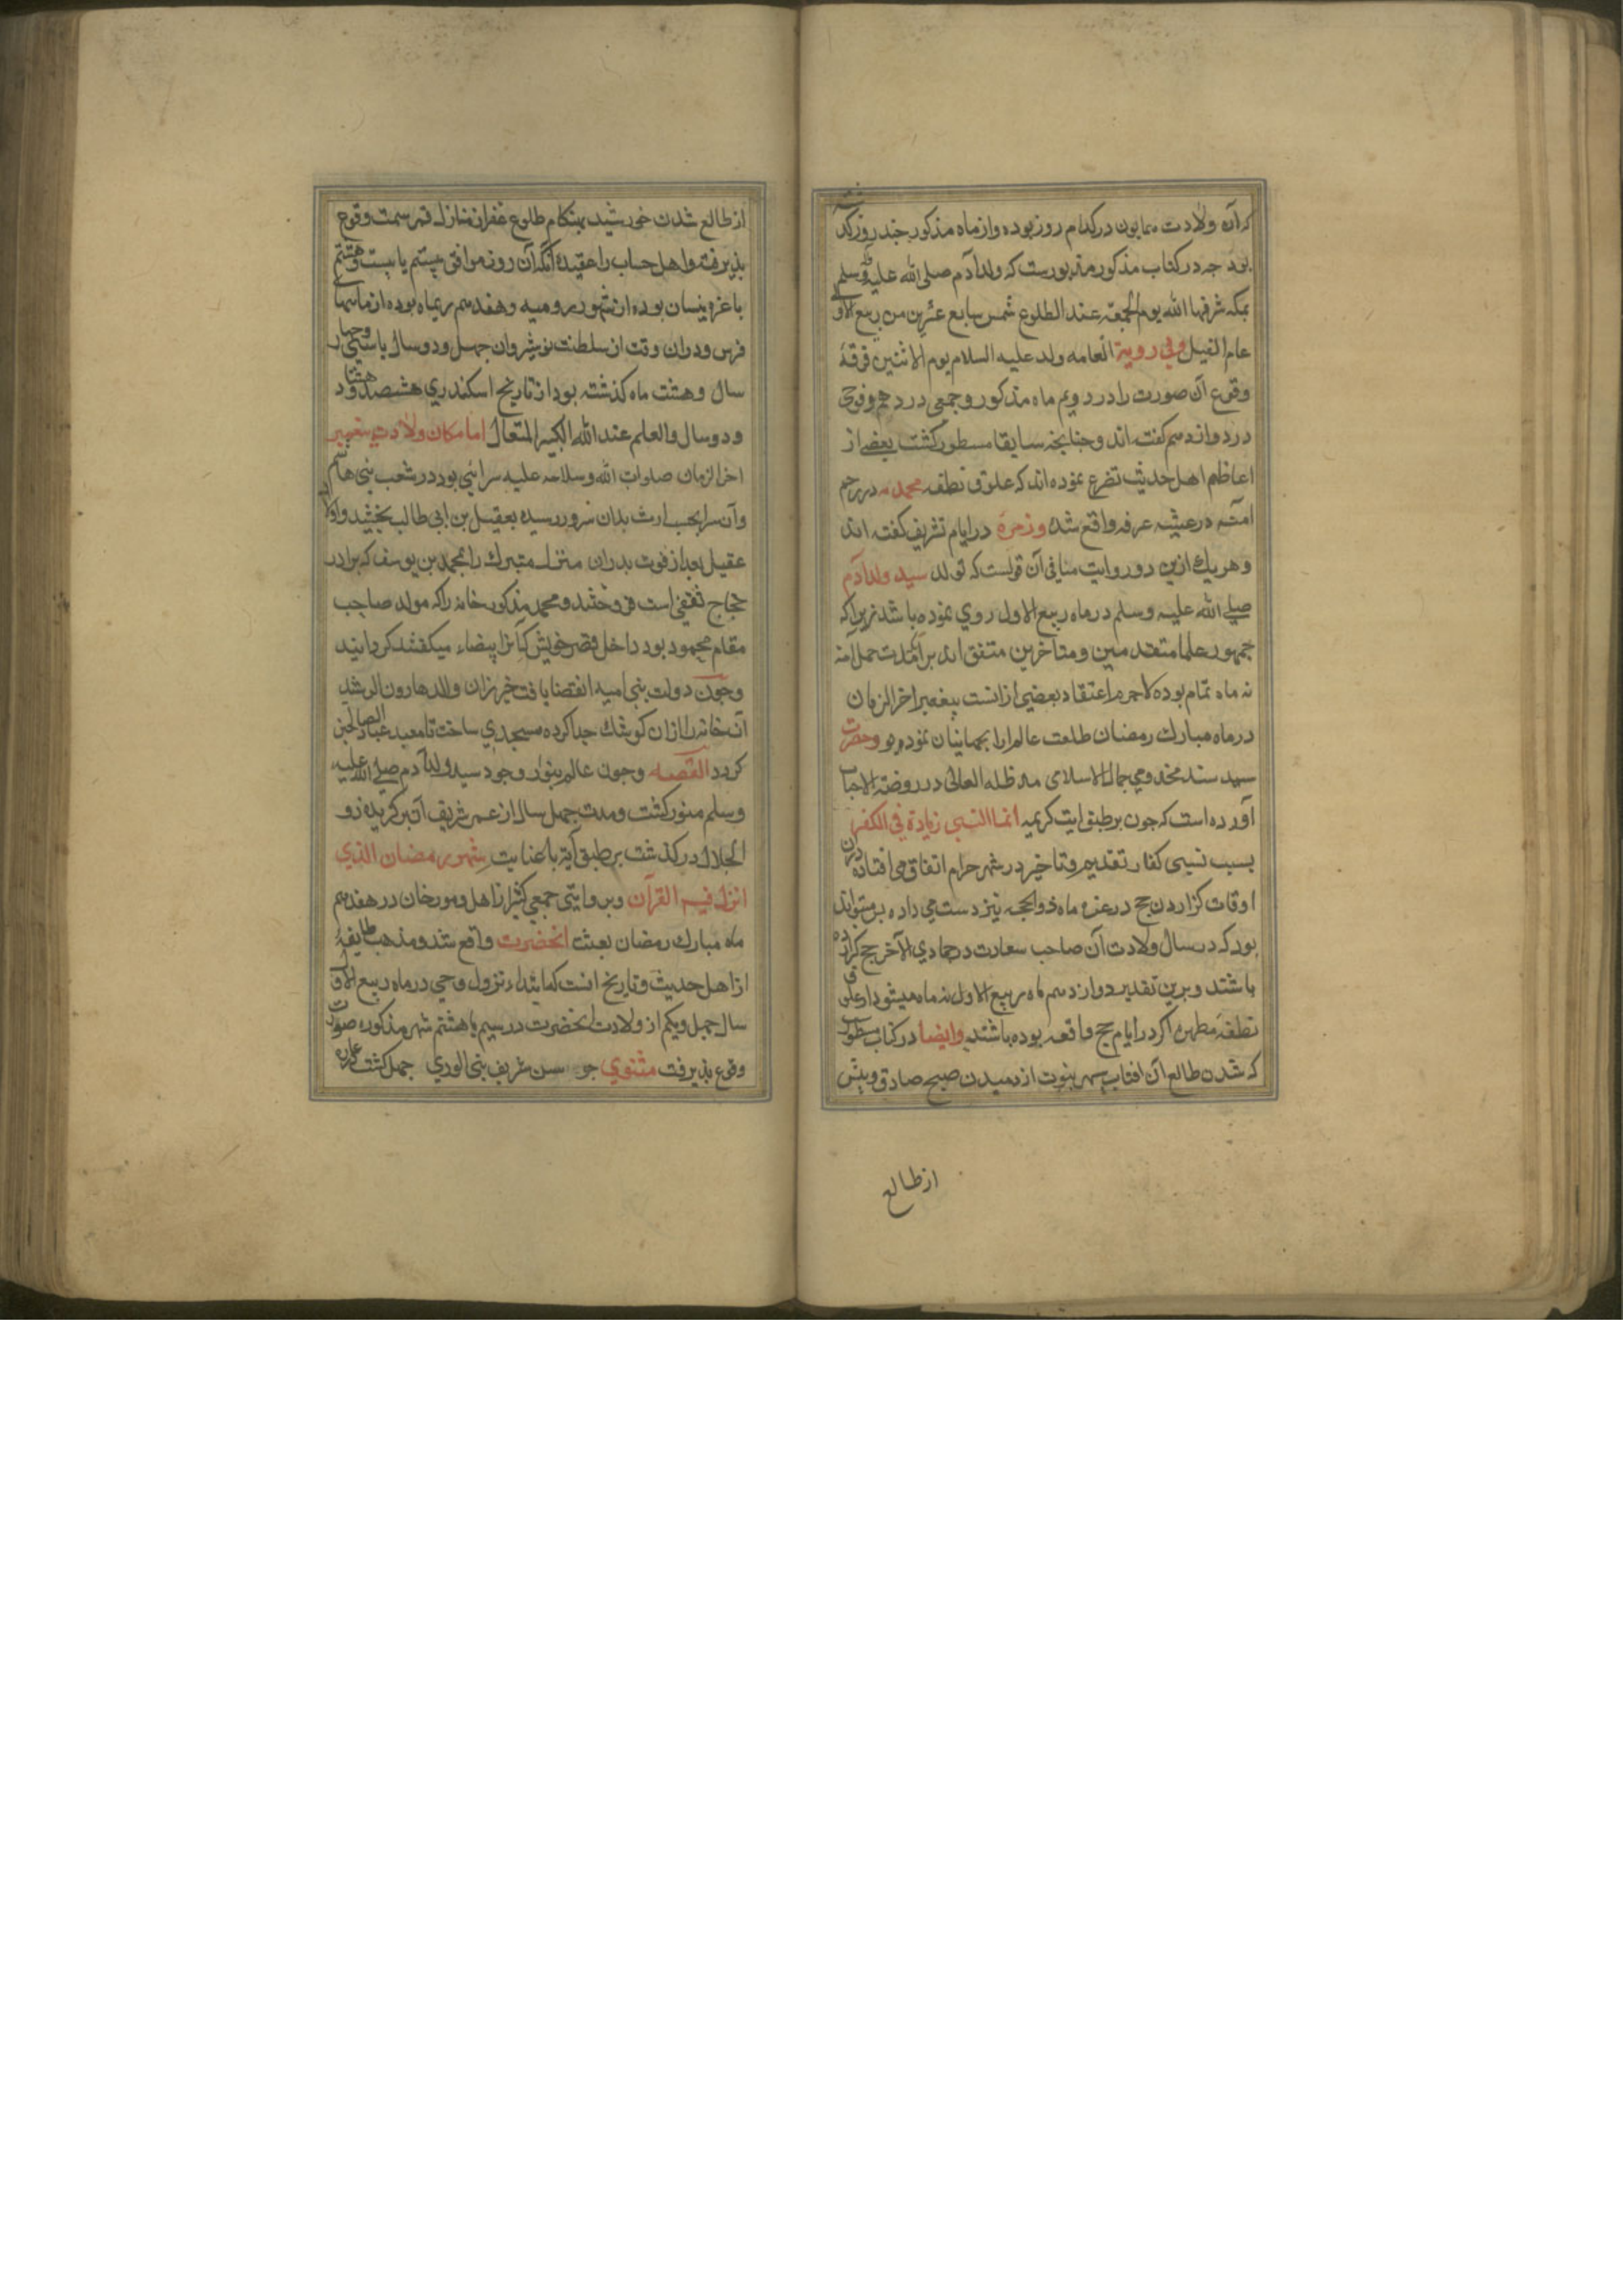 کرآن ولادت همایون در کدام روز بوده و از ماه مذکور چند روز کذشته
بود چه در کتاب مذکور مزبورست که ولد آدم صلی الله علیه وسلم
بمکه شرفها الله یوم الجمعه عند الطلوع شمس سابع عشرین من ربیع الاول
عام الفیل وفي روية العامه ولد علیه السلام یوم الاثنین فرقهٔ
وقوع آن صورت را در دویم ماه مذکور و جمعی در دهم و فوجی
در دوازدهم کفته اند و چنانچه سابقا مسطور کشت بعضی از
اعاظم اهل حدیث تصریح نموده اند که علوق نطفه محمدیه در رحم
آمنه در عشیه عرفه واقع شد و زمرهٔ در ایام تشریق کفته اند
وهریك ازین دو روایت منافی آن قولست که تولد سید ولد آدم
صلی الله علیه وسلم در ماه ربیع الاول روی نموده باشد زیرا که
جمهور علما متقدمین و متاخرین متفق اند برآنکه مدت حمل آمنه
نه ماه تمام بوده لاجرم اعتقاد بعضی از آنست پیغمبر اخر الزمان
در ماه مبارك رمضان طلعت عالم ارا بجهانیان نموده بود و حضرت
سید سند مخدومی جمال الاسلامی مد ظله العالی در روضة الاحباب
آورده است که چون بر طبق ایت کریمه انما النسی زیادة في الکفر
بسبب نسیی کفار تقدیم و تاخیر در شهر حرام اتفاق می افتاده دران
اوقات کزاردن حج در غره ماه ذوالحجه نیز دست می داده پس میتواند
بود که در سال ولادت آن صاحب سعادت در جمادي الآخر حج کزارده
باشند و برین تقدیر دوازدهم ماه ربیع الاول نه ماه میشود از علوق
نطفهٔ مطهره اکر در ایام حج واقعه بوده باشند وایضا در کتاب مسطور
که شدن طالع آن افتاب سپهر نبوت از دمیدن صبح صادق و پیش
از طالع
از طالع شدن خورشید بهنکام طلوع غفر از منازل قمر سمت وقوع
پذیرفته واهل حساب را عقیده آنکه آن روز موافق بیستم یا بیست وهشتم
یا غره نیسان بوده از شهور رومیه و هفدهم دیماه بوده از ماهها
فرس ودران وقت از سلطنت نوشیروان چهل ودو سال یا سی وچهار
سال وهشت ماه کذشته بود از تاریخ اسکندري هشتصد وهشتاد
و دو سال والعلم عند الله الکبیر المتعال اما مکان ولادت پیغمبر
اخر الزمان صلوات الله وسلامه علیه سرائی بود در شعب بنی هاشم
وآن سرا بحسب ارث بدان سرور رسیده بعقیل بن ابی طالب بخشید واولاد
عقیل بعد از فوت پدر آن منزل متبرك را بمحمد بن یوسف که برادر
حجاج ثقفی است فروختند و محمد مذکور خانه را که مولد صاحب
مقام محمود بود داخل قصر خویش که آنرا بیضاء میکفتند کردانید
وچون دولت بنی امیه انقضا یافت خیزران والده هارون الرشید
آن خانه را از ان کوشك جدا کرده مسجدی ساخت تا معبد عباد الصالحین
کردد القصه وچون عالم بنور وجود سید ولد آدم صلی الله علیه
وسلم منور کشت ومدت چهل سال از عمر شریف آن برکزیده ذو
الجلال درکذشت بر طبق آیة با عنایت شهر رمضان الذي
انزل فیه القرآن وبروایتی جمعی کثیر از اهل ومورخان در هفدهم
ماه مبارك رمضان بعثت انحضرت واقع شد و مذهب طایفهٔ
از اهل حدیث و تاریخ انست که ابتداء نزول وحی در ماه ربیع الاول
سال چهل ویکم از ولادت انحضرت در سیم یا هشتم شهر مذکوره صورت
وقوع پذیرفت مثنوي چو سن شریف نبی الوري چهل کشت